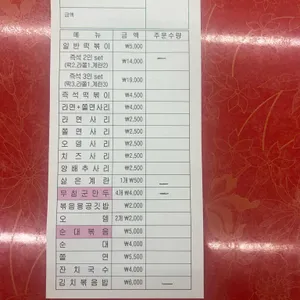 금액
메 뉴 금 액 주문수량
일반떡볶이 ₩5,000
즉석 2인 set
(떡2,라쫄1,계란2) ₩14,000
즉석 3인 set
(떡3,라쫄1,계란3) ₩19,000
즉석떡볶이 ₩4,500
라면+쫄면사리 ₩2,500
라면사리 ₩2,500
쫄면사리 ₩2,500
오뎅사리 ₩2,500
치즈사리 ₩2,500
양배추사리 ₩2,500
삶은계란 1개 ₩500
무침군만두 4개 ₩4,000
볶음봉공깃밥 ₩2,000
오 뎅 2개 ₩2,000
순대볶음 ₩5,000
순 대 ₩4,000
쫄 면 ₩5,500
잔치국수 ₩4,000
김치볶음밥 ₩6,000